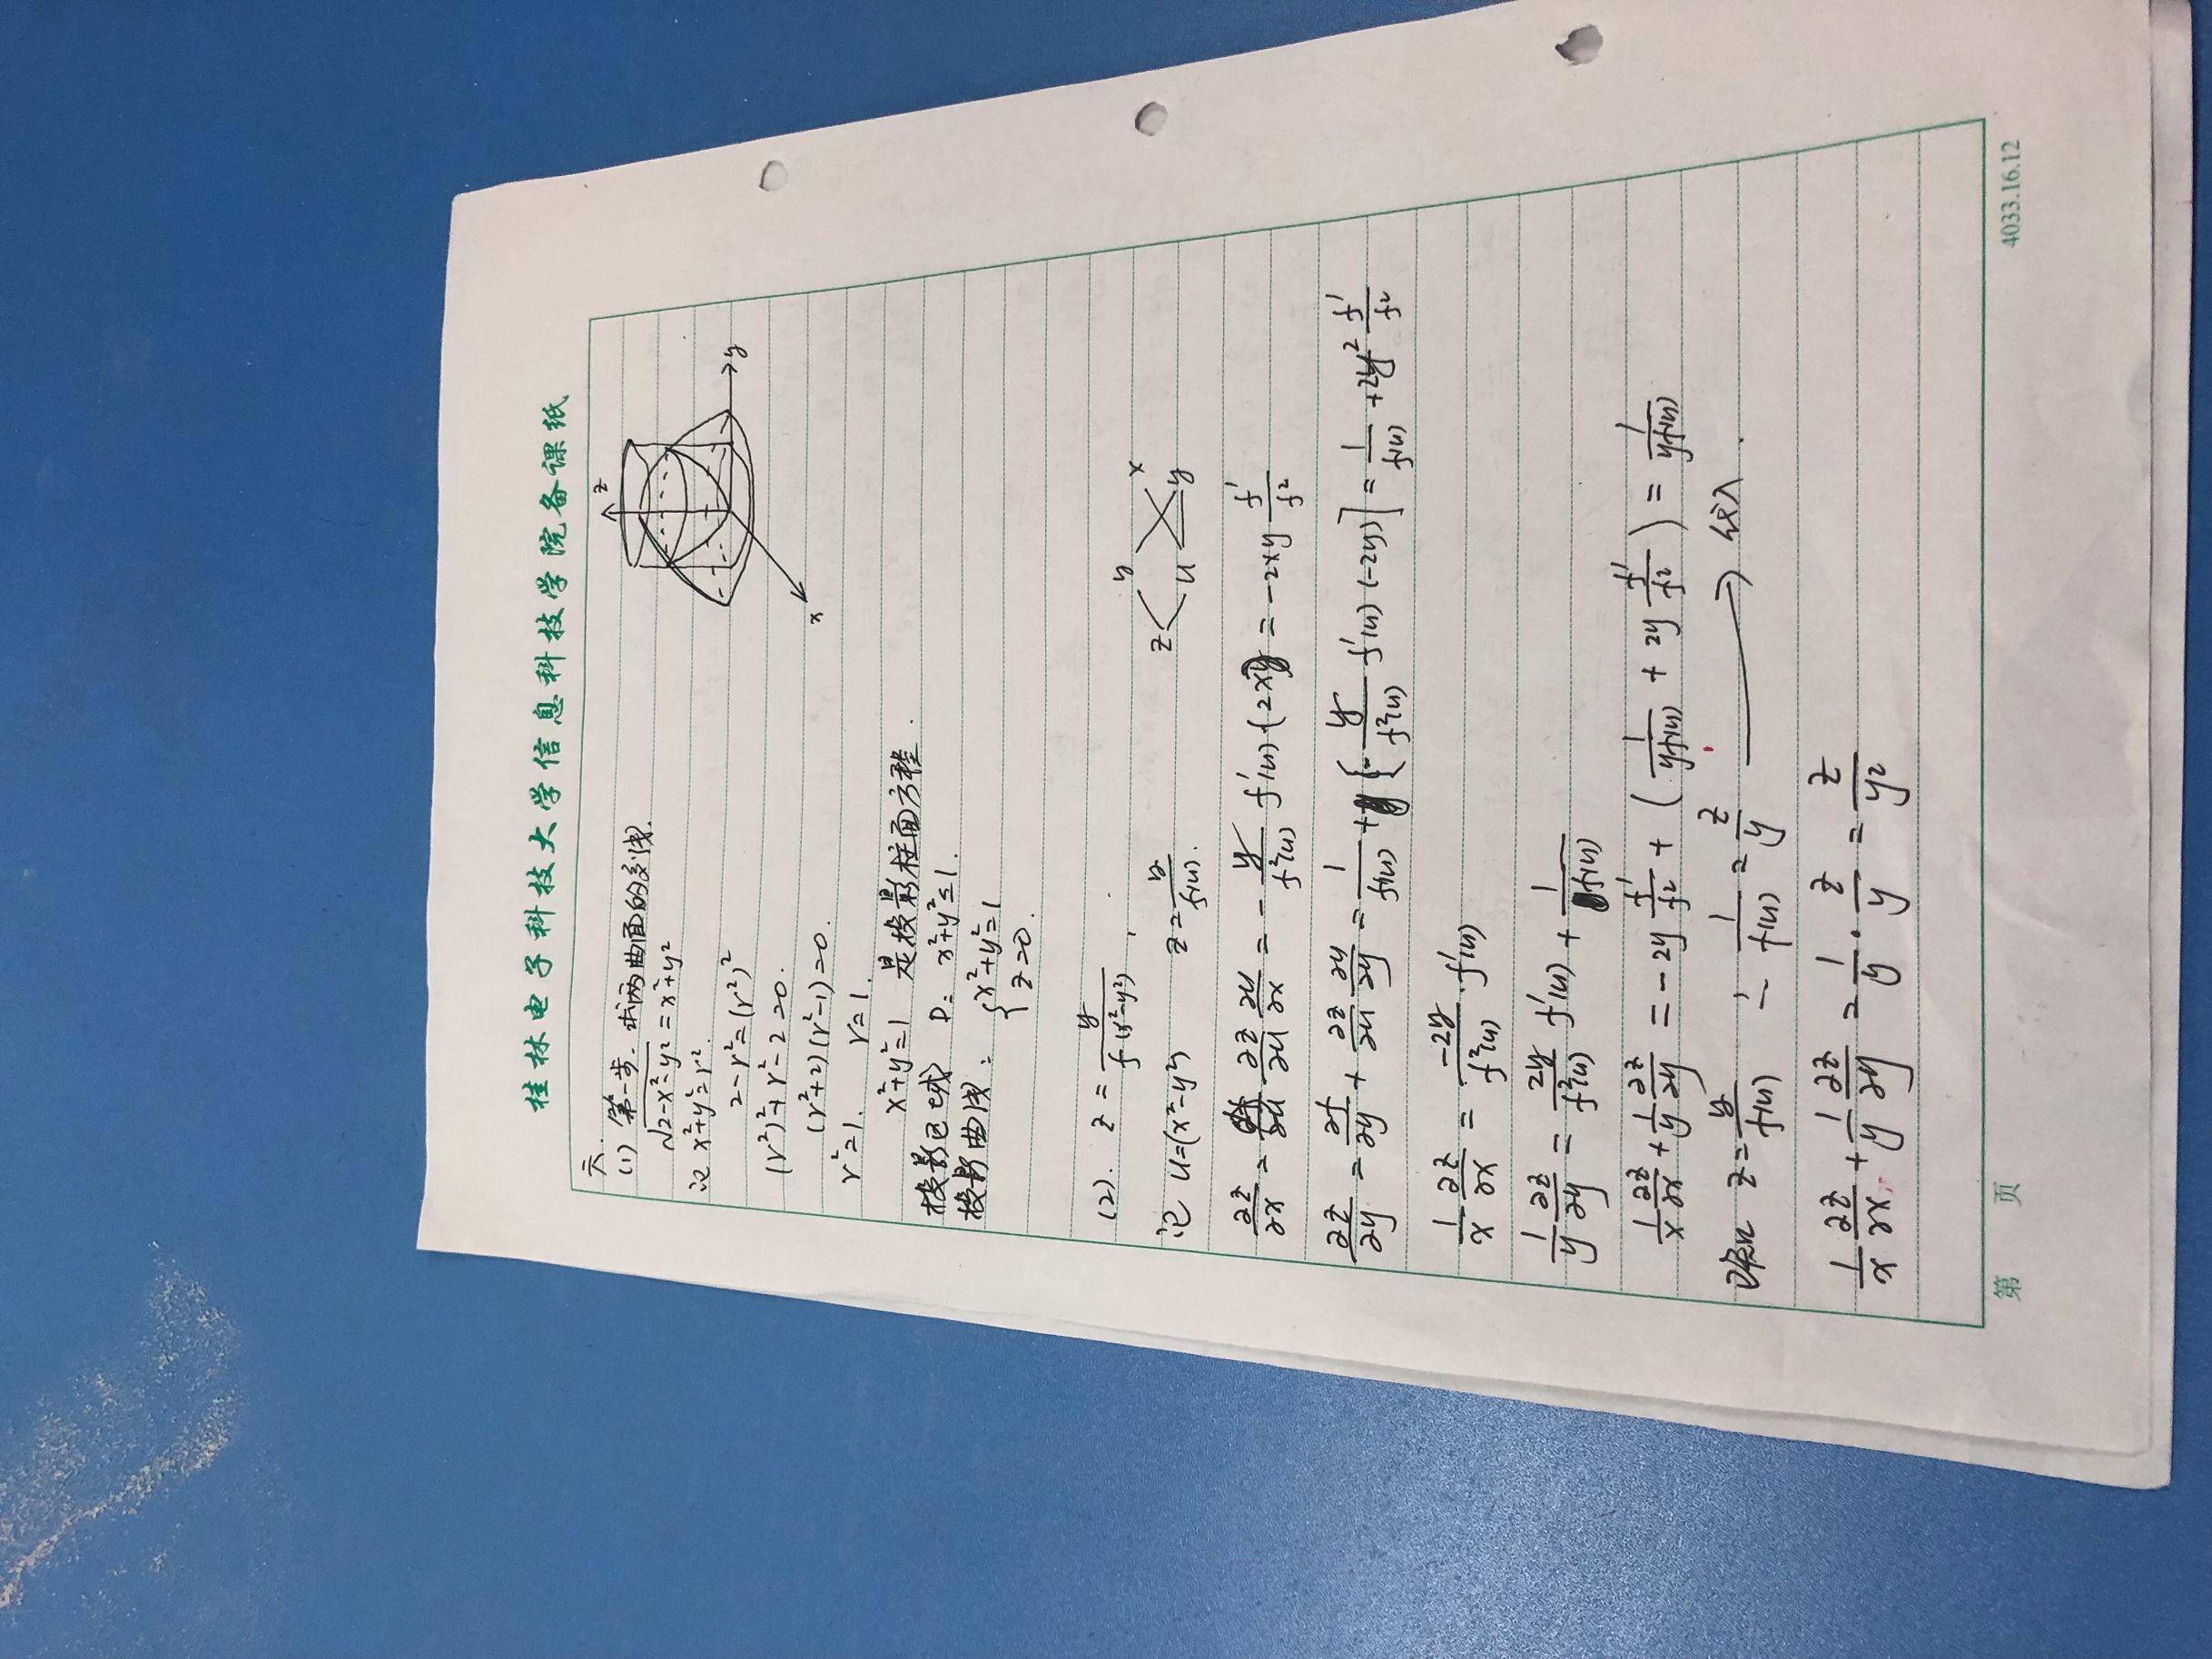 桂林电子科技大学信息科技学院备课纸
六.
(1) 第一步. 求两曲面的交线.
√(2-x²-y²) = x²+y²
记 x²+y²=r².
2-r²=(r²)²
(r²)²+r²-2=0.
(r²+2)(r²-1)=0.
r²=1. r=1.
x²+y²=1 是投影柱面方程.
投影区域 D: x²+y²≤1.
投影曲线: { x²+y²=1
z=0.
z
y
x
(2). z = y/f(x²-y²),
记 u=(x²-y²) z=y/f(u).
z y u x y
∂z/∂x = ∂z/∂u ∂u/∂x = -y/f²(u) f'(u)·(2x) = -2xy f'/f²
∂z/∂y = ∂f/∂y + ∂z/∂u ∂u/∂y = 1/f(u) + [-y/f²(u) f'(u)(-2y)] = 1/f(u) + 2y² f'/f²
1/x ∂z/∂x = -2y/f²(u) · f'(u)
1/y ∂z/∂y = 2y/f²(u) f'(u) + 1/f(u)
1/x ∂z/∂x + 1/y ∂z/∂y = -2y f'/f² + (1/yf(u) + 2y f'/f²) = 1/yf(u)
已知 z=y/f(u) ∴ 1/f(u) = z/y → 代入.
1/x ∂z/∂x + 1/y ∂z/∂y = 1/y · z/y = z/y²
第 页
4033.16.12